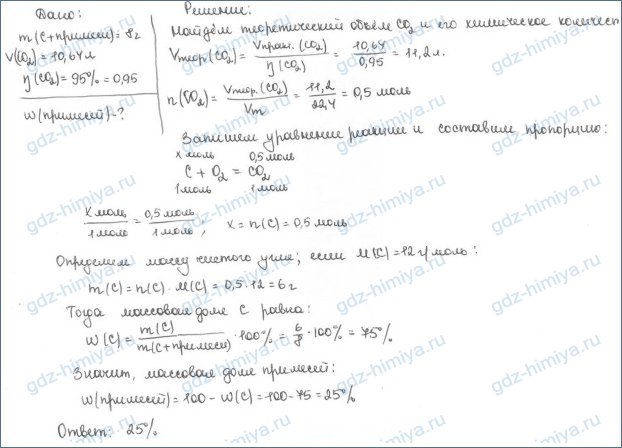 Дано:
m(C+примеси)=8г
V(CO₂)=10,64л
η(CO₂)=95%=0,95
w(примесей)-?
Решение:
Найдём теоретический объём CO₂ и его химическое количест
Vтеор.(CO₂) = Vпракт.(CO₂) / η(CO₂) = 10,64 / 0,95 = 11,2 л.
n(CO₂) = Vтеор.(CO₂) / Vm = 11,2 / 22,4 = 0,5 моль
Запишем уравнение реакции и составим пропорцию:
x моль 0,5 моль
C + O₂ = CO₂
1 моль 1 моль
x моль / 1 моль = 0,5 моль / 1 моль, x = n(C) = 0,5 моль
Определяем массу чистого угля, если M(C)=12 г/моль:
m(C) = n(C) · M(C) = 0,5 · 12 = 6 г
Тогда массовая доля C равна:
w(C) = m(C) / m(C+примеси) · 100% = 6/8 · 100% = 75%
Значит, массовая доля примесей:
w(примесей) = 100 - w(C) = 100 - 75 = 25%
Ответ: 25%
gdz-himiya.ru